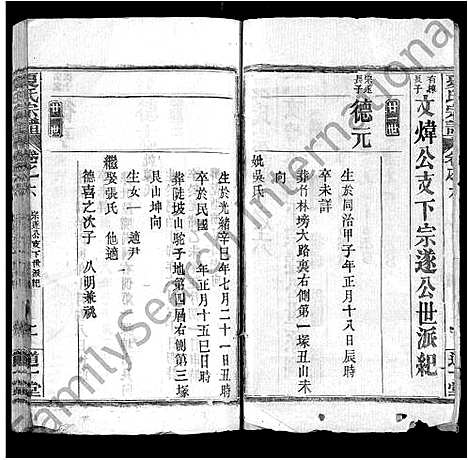 夏氏宗譜
有穗
長子
文煒公支下宗遂公世派紀
廿一世
宗遂
長子
德元
生於同治甲子年正月十八日辰時
卒未詳
葬竹林塝大路裏右側第一塚丑山未
妣吳氏
生於光緒辛巳年七月二十一日丑時
卒於民國 年正月十五巳日時
葬陡坡山駝子地第四層右側第三塚
艮山坤向
生女一 適尹
繼娶張氏 他適
德喜之次子 八明兼祧
廿二世
夏氏宗譜
卷之六
宗遂公支下世派紀
道一堂
FamilySearch International